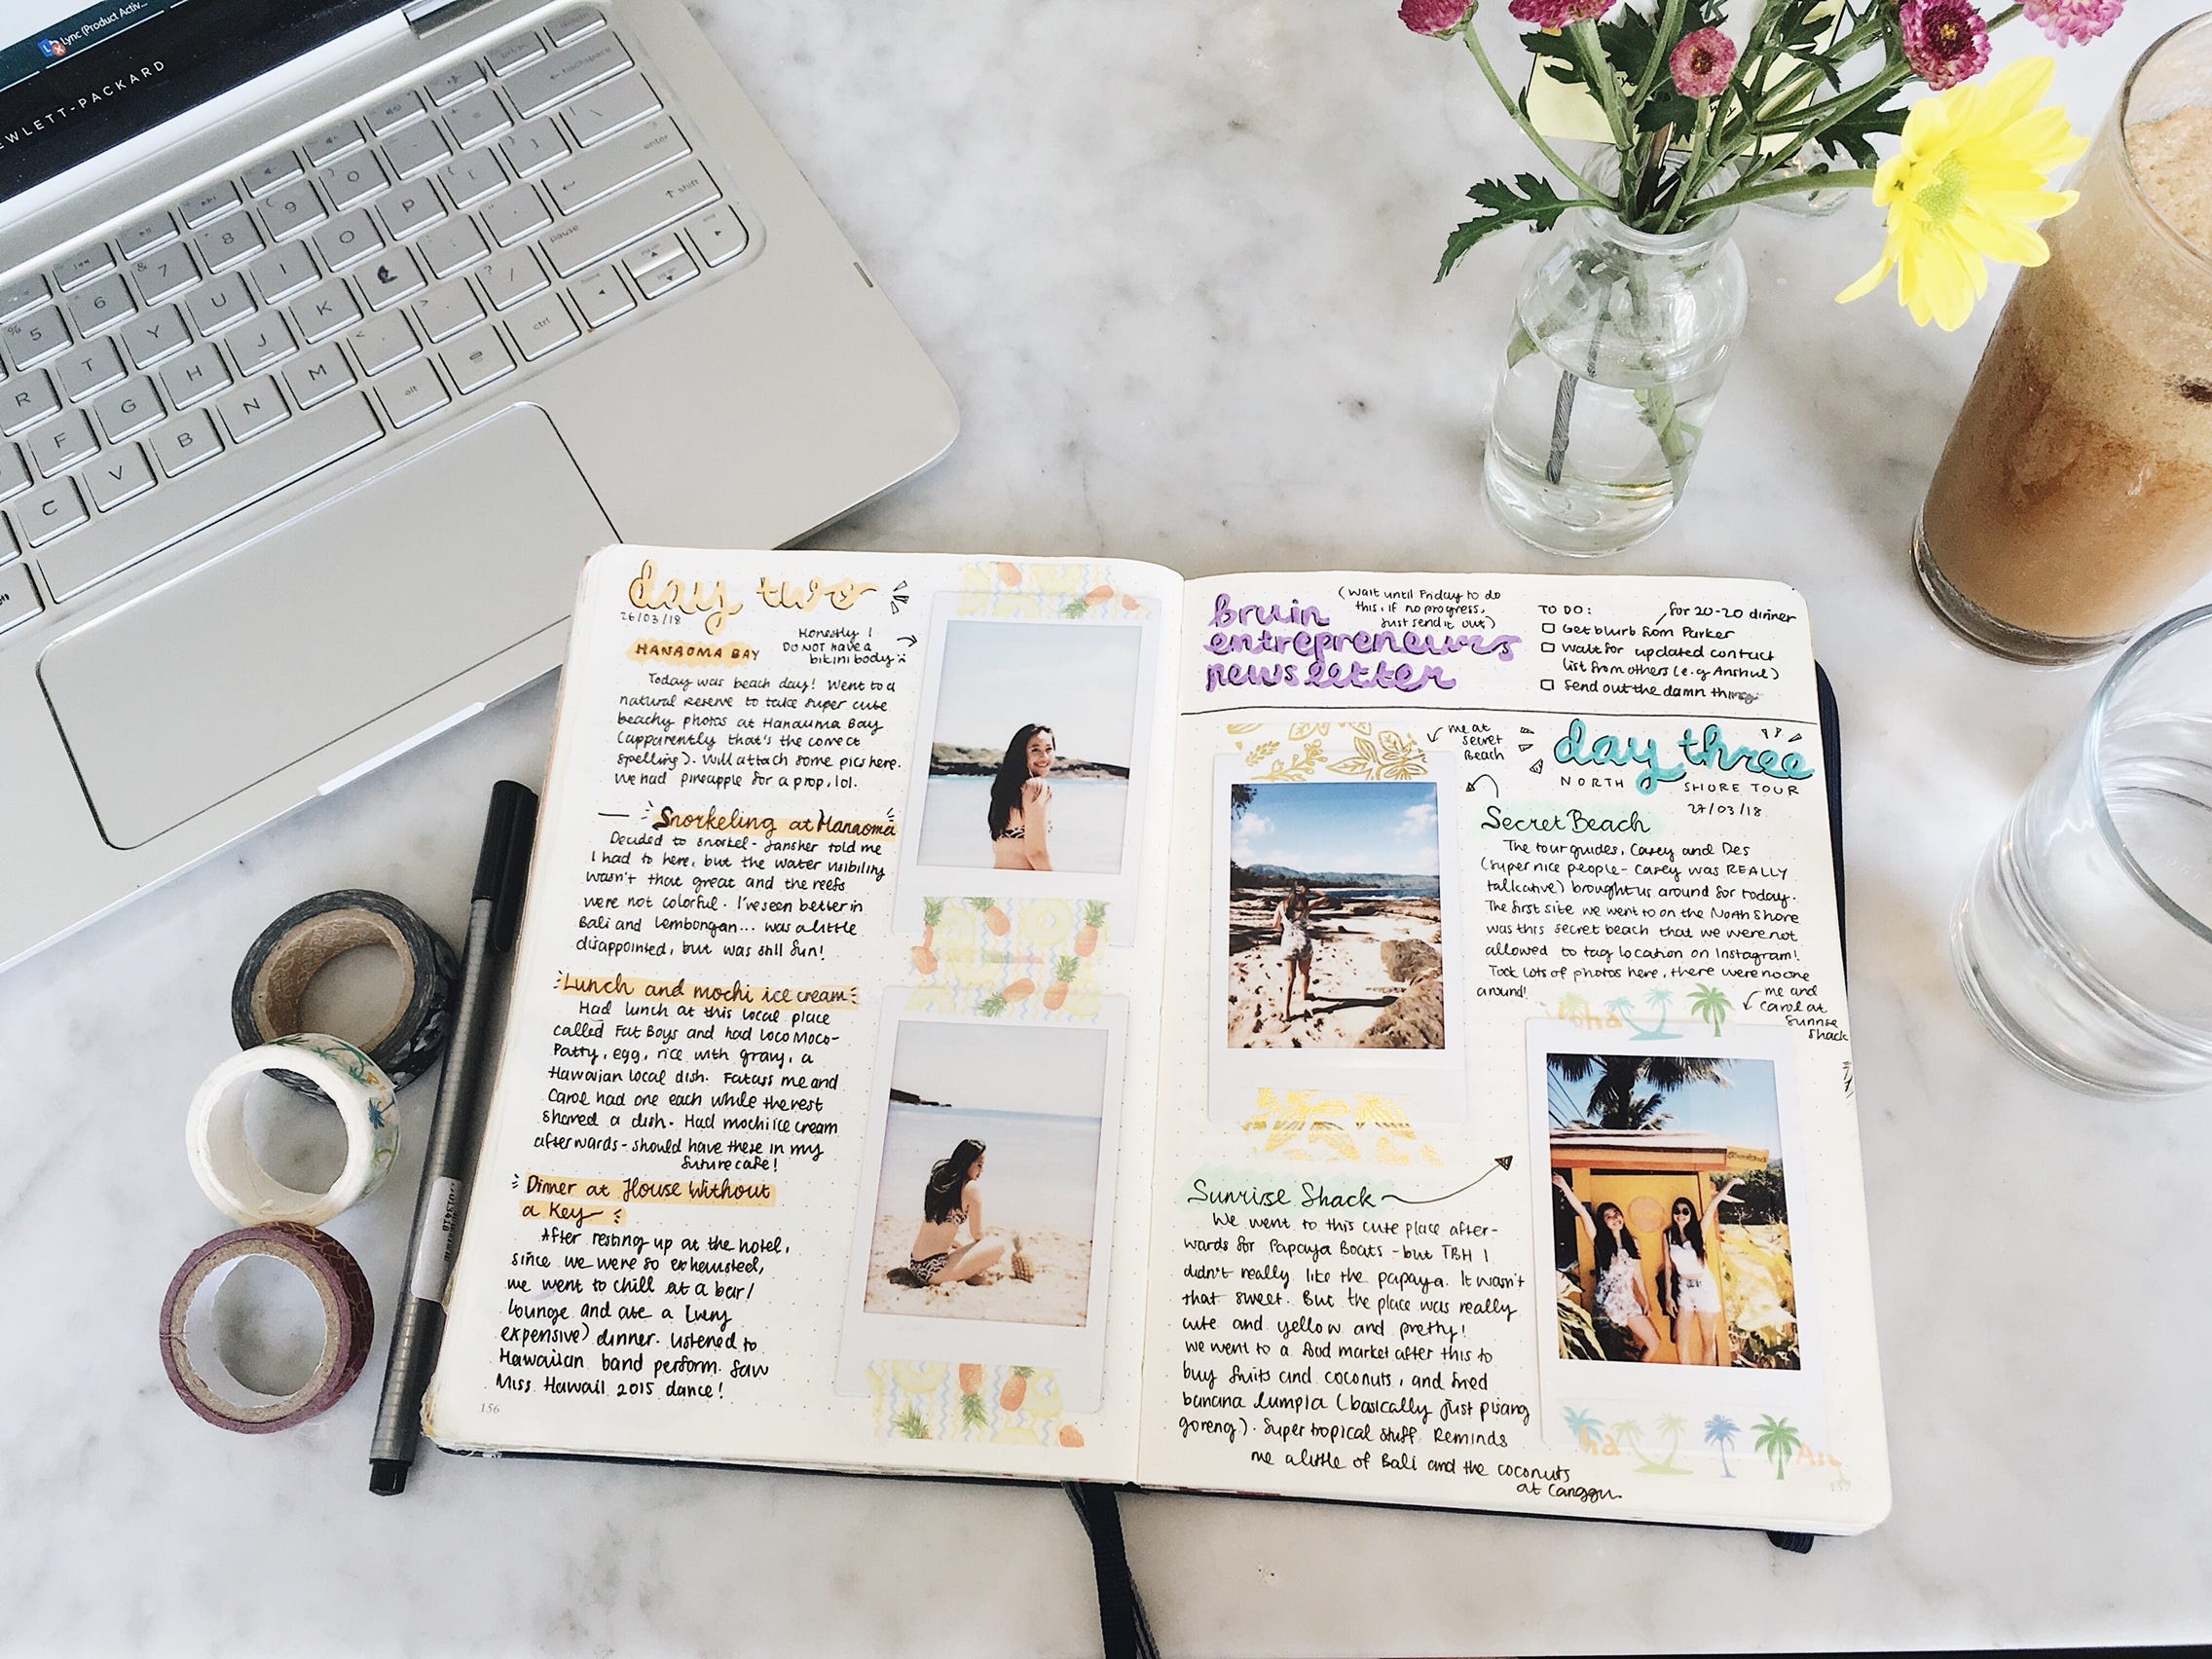 Lync (Product Activ...
HEWLETT-PACKARD
backspace
enter
shift
pause
ctrl
alt
5
6
7
8
9
0
R
T
Y
U
I
O
P
F
G
H
J
K
C
V
B
N
M
day two
26/03/18
HANAOMA BAY
Honestly I
DO NOT have a
bikini body
Today was beach day! Went to a
natural reserve to take super cute
beachy photos at Hanauma Bay
(apparently that's the correct
spelling). Will attach some pics here.
We had pineapple for a prop, lol.
Snorkeling at Hanaoma
Decided to snorkel - Jansher told me
I had to here, but the water visibility
wasn't that great and the reefs
were not colorful. I've seen better in
Bali and Lembongan... was a little
disappointed, but was still fun!
Lunch and mochi ice cream
Had lunch at this local place
called Fat Boys and had Loco Moco-
Patty, egg, rice with gravy, a
Hawaiian local dish. Fatass me and
Carol had one each while the rest
shared a dish. Had mochi ice cream
afterwards - should have these in my
future cafe!
Dinner at House Without
a Key
After resting up at the hotel,
since we were so exhausted,
we went to chill at a bar/
lounge and ate a (very
expensive) dinner. Listened to
Hawaiian band perform. Saw
Miss Hawaii 2015 dance!
156
bruin
entrepreneurs
newsletter
(wait until Friday to do
this, if no progress,
just send it out)
TO DO:
for 20-20 dinner
Get blurb from Parker
Wait for updated contact
list from others (e.g Anshul)
Send out the damn thing
me at
secret
Beach
day three
NORTH SHORE TOUR
27/03/18
Secret Beach
The tour guides, Carey and Des
(super nice people - Carey was REALLY
talkative) brought us around for today.
The first site we went to on the North Shore
was this secret beach that we were not
allowed to tag location on Instagram!
Took lots of photos here, there were no one
around!
me and
Carol at
Sunrise
Shack
aloha
Sunrise Shack
We went to this cute place after-
wards for Papaya Boats - but TBH I
didn't really like the papaya. It wasn't
that sweet. But the place was really
cute and yellow and pretty!
We went to a food market after this to
buy fruits and coconuts, and fried
banana lumpia (basically just pisang
goreng). Super tropical stuff. Reminds
me a little of Bali and the coconuts
at Canggu.
157